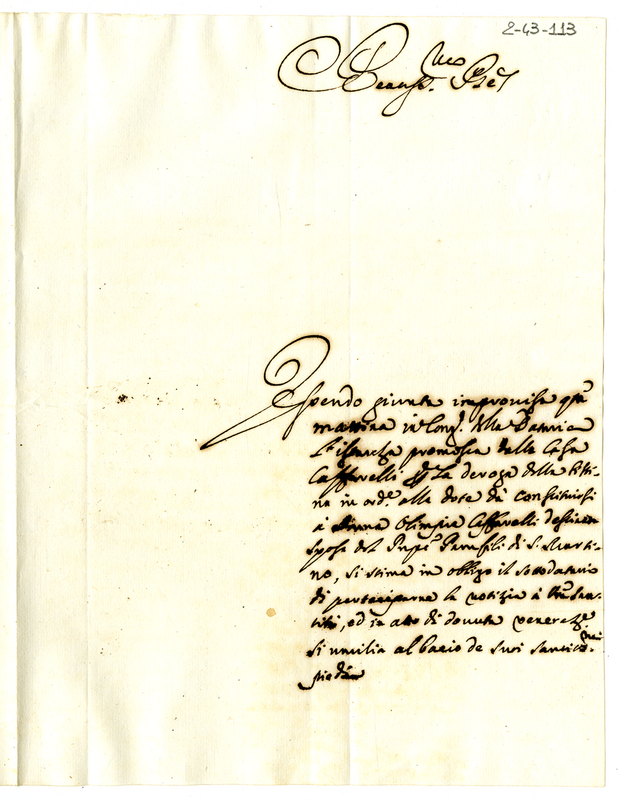 2-43-113
Beatiss.mo P̄re
Essendo giunta improvisa q̄ta
mattina in Cong. della Dataria
l'istanza promossa dalla Casa
Caffarelli la deroga della Sisti-
na in ord.e alla dote da constituirsi
à Donna Olimpia Caffarelli destinata
sposa del Panfili di S. Marti-
no, si stima in obligo il Sottodatario
di partecipare la notizia à V̄ra San-
tità, ed in atto di dovuta veneraz.e
si umilia al bacio de suoi Santiss.mi
piedi